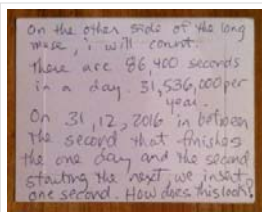 On the other side of the long
muse, i will count.
there are 86,400 seconds
in a day. 31,536,000 per
year.
On 31, 12, 2016 in between
the second that finishes
the one day and the second
starting the next, we insert
one second. How does this look?